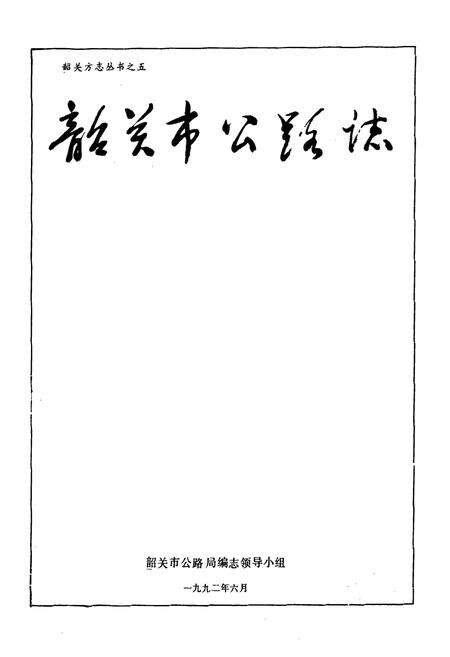 韶关方志丛书之五
韶关市公路誌
韶关市公路局编志领导小组
一九九二年六月